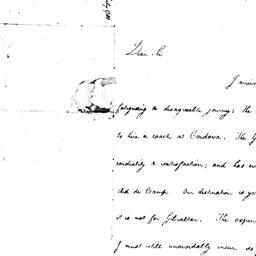 Dear Sir
I arrived
fatiguing & disagreeable journey: the
to hire a coach at Cordova. The G
cordiality & satisfaction; and has
Aid de Camp. Our destination is
it is not for Gibraltar. The expen
I must still unavoidably incur so